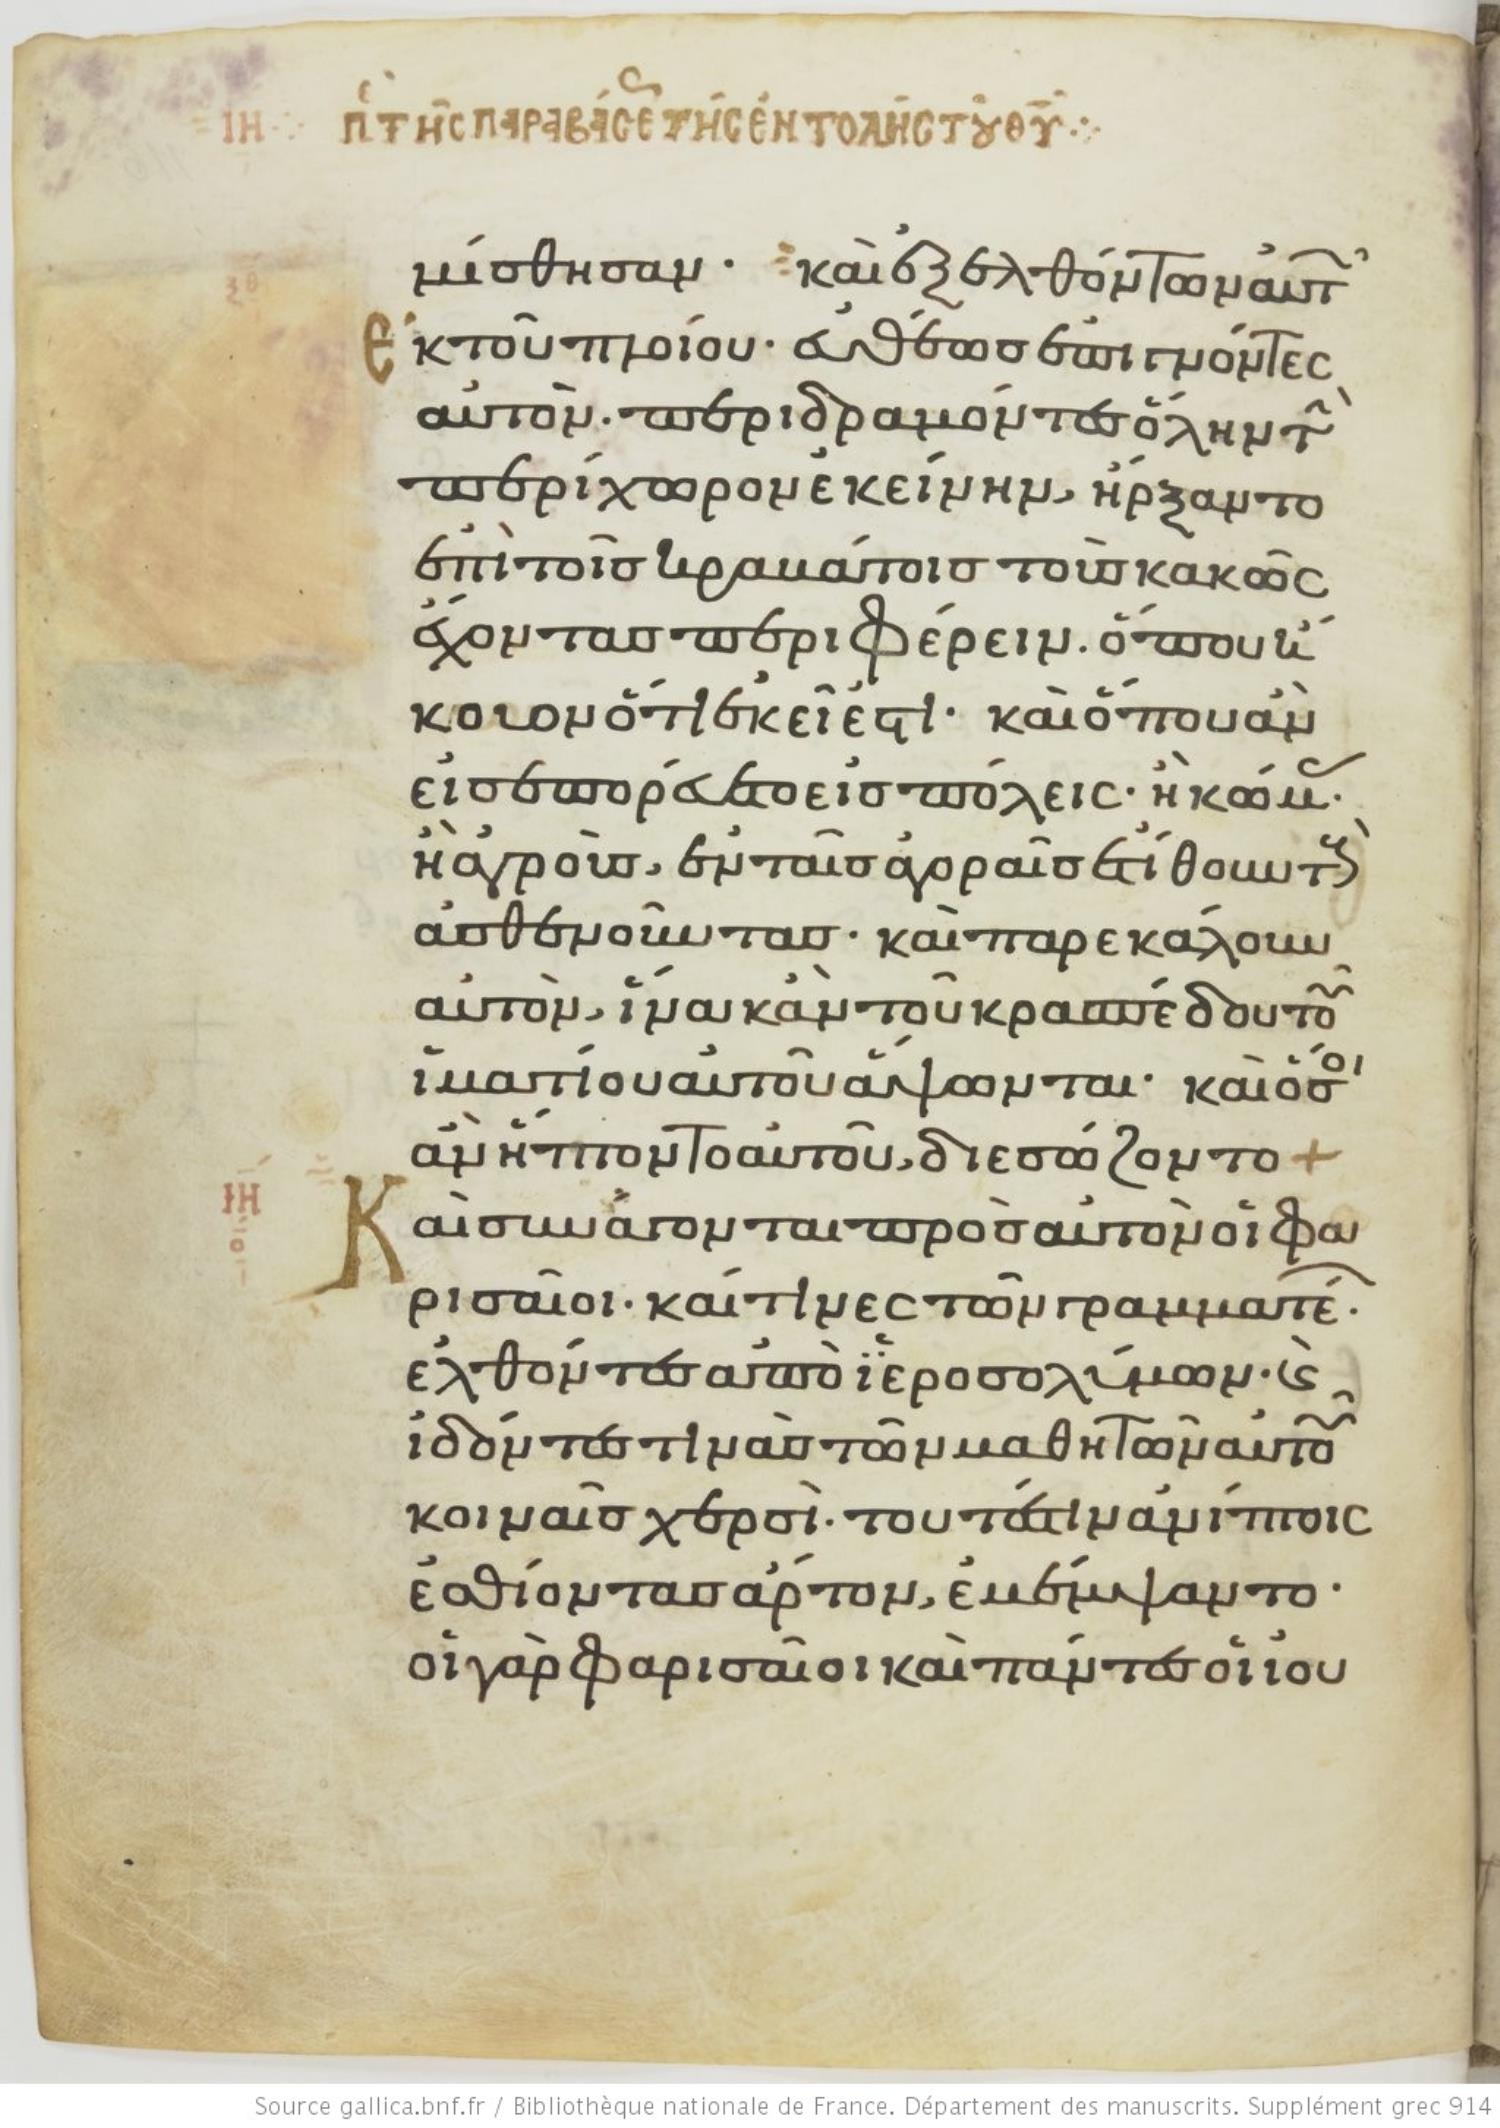 ΙΗ πτῆς παραβάσε τῆς ἐντολῆς τοῦ θυ
ξθ
μίσθησαν· καὶ ἐξελθόντων αὐτ
ἐκ τοῦ πλοίου· εὐθέως ἐπιγνόντες
αὐτὸν· περιδραμόντες ὅλην τ
περίχωρον ἐκείνην, ἤρξαντο
ἐπὶ τοῖς κραμάτοις τοὺς κακῶς
ἔχοντας περιφέρειν. ὅπου ἤ
κουον ὅτι ἐκεῖ ἐστι· καὶ ὅπου ἂν
εἰσεπορεύετο εἰς πόλεις· ἢ κώμ·
ἢ ἀγροὺς, ἐν ταῖς ἀγοραῖς ἐτίθουν τ
ἀσθενοῦντας· καὶ παρεκάλουν
αὐτὸν, ἵνα κἂν τοῦ κρασπέδου το
ἱματίου αὐτοῦ ἅψωνται· καὶ ὅσοι
ἂν ἥπτοντο αὐτοῦ, διεσώζοντο +
ΙΗ
ο
Καὶ συνάγονται πρὸς αὐτὸν οἱ φα
ρισαῖοι· καί τινες τῶν γραμματέ·
ἐλθόντες ἀπὸ ἱεροσολύμων· ϗ
ἰδόντες τινὰς τῶν μαθητῶν αὐτο
κοιναῖς χερσὶ· τουτέστιν ἀνίπτοις
ἐσθίοντας ἄρτον, ἐμέμψαντο·
οἱ γὰρ φαρισαῖοι καὶ πάντες οἱ ἰου
Source gallica.bnf.fr / Bibliothèque nationale de France. Département des manuscrits. Supplément grec 914